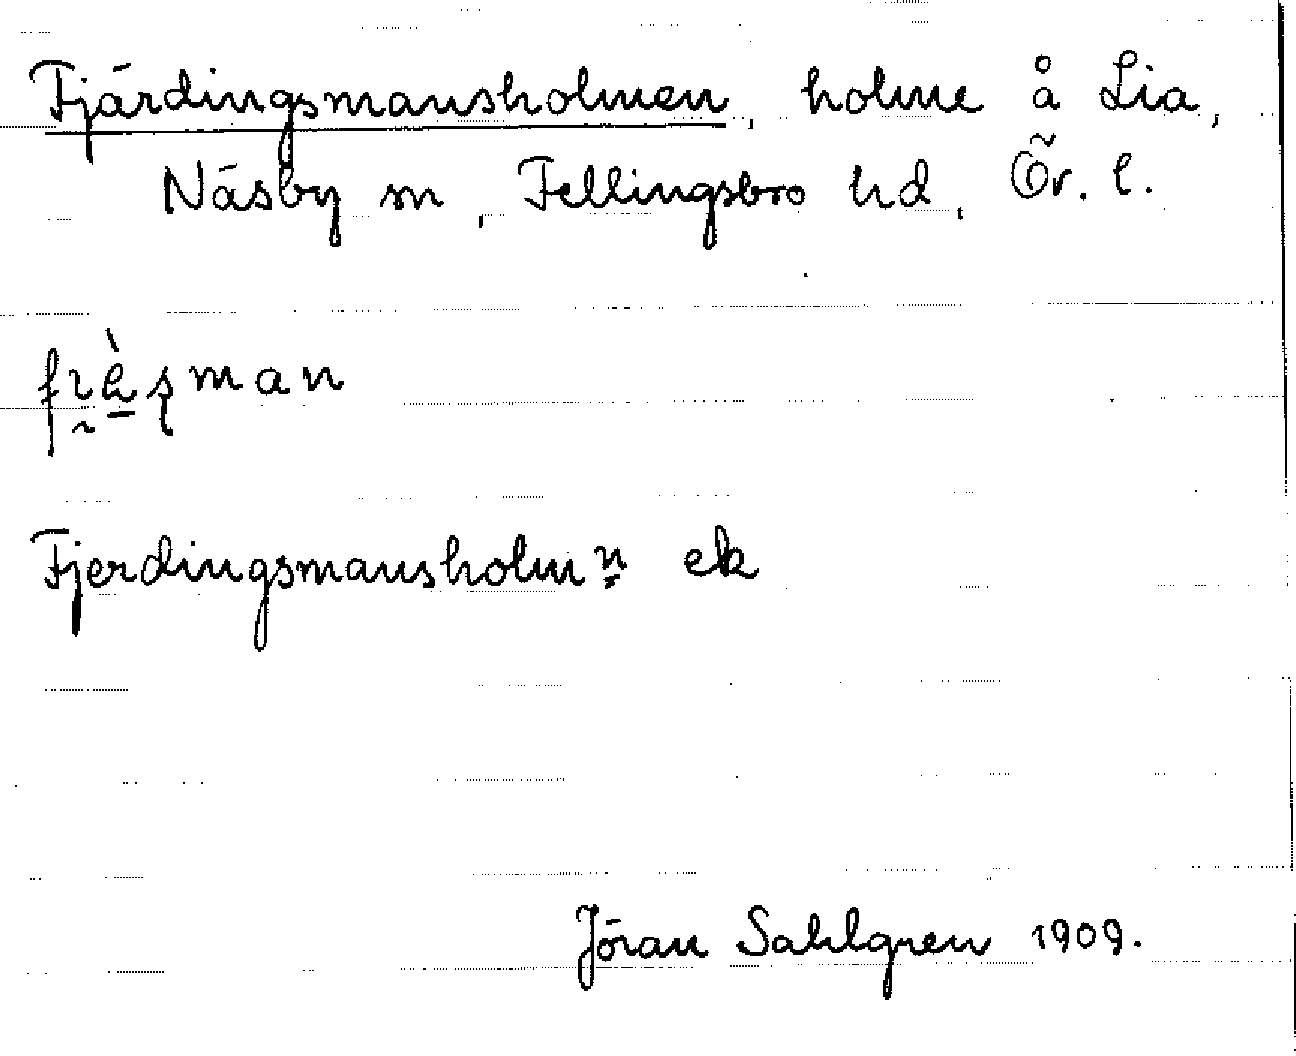 Fjärdingsmansholmen, holme å Lia,
Näsby sn, Fellingsbro hd, Ör. l.
Fjerdingsmansholmn ek
Jöran Sahlgren 1909.